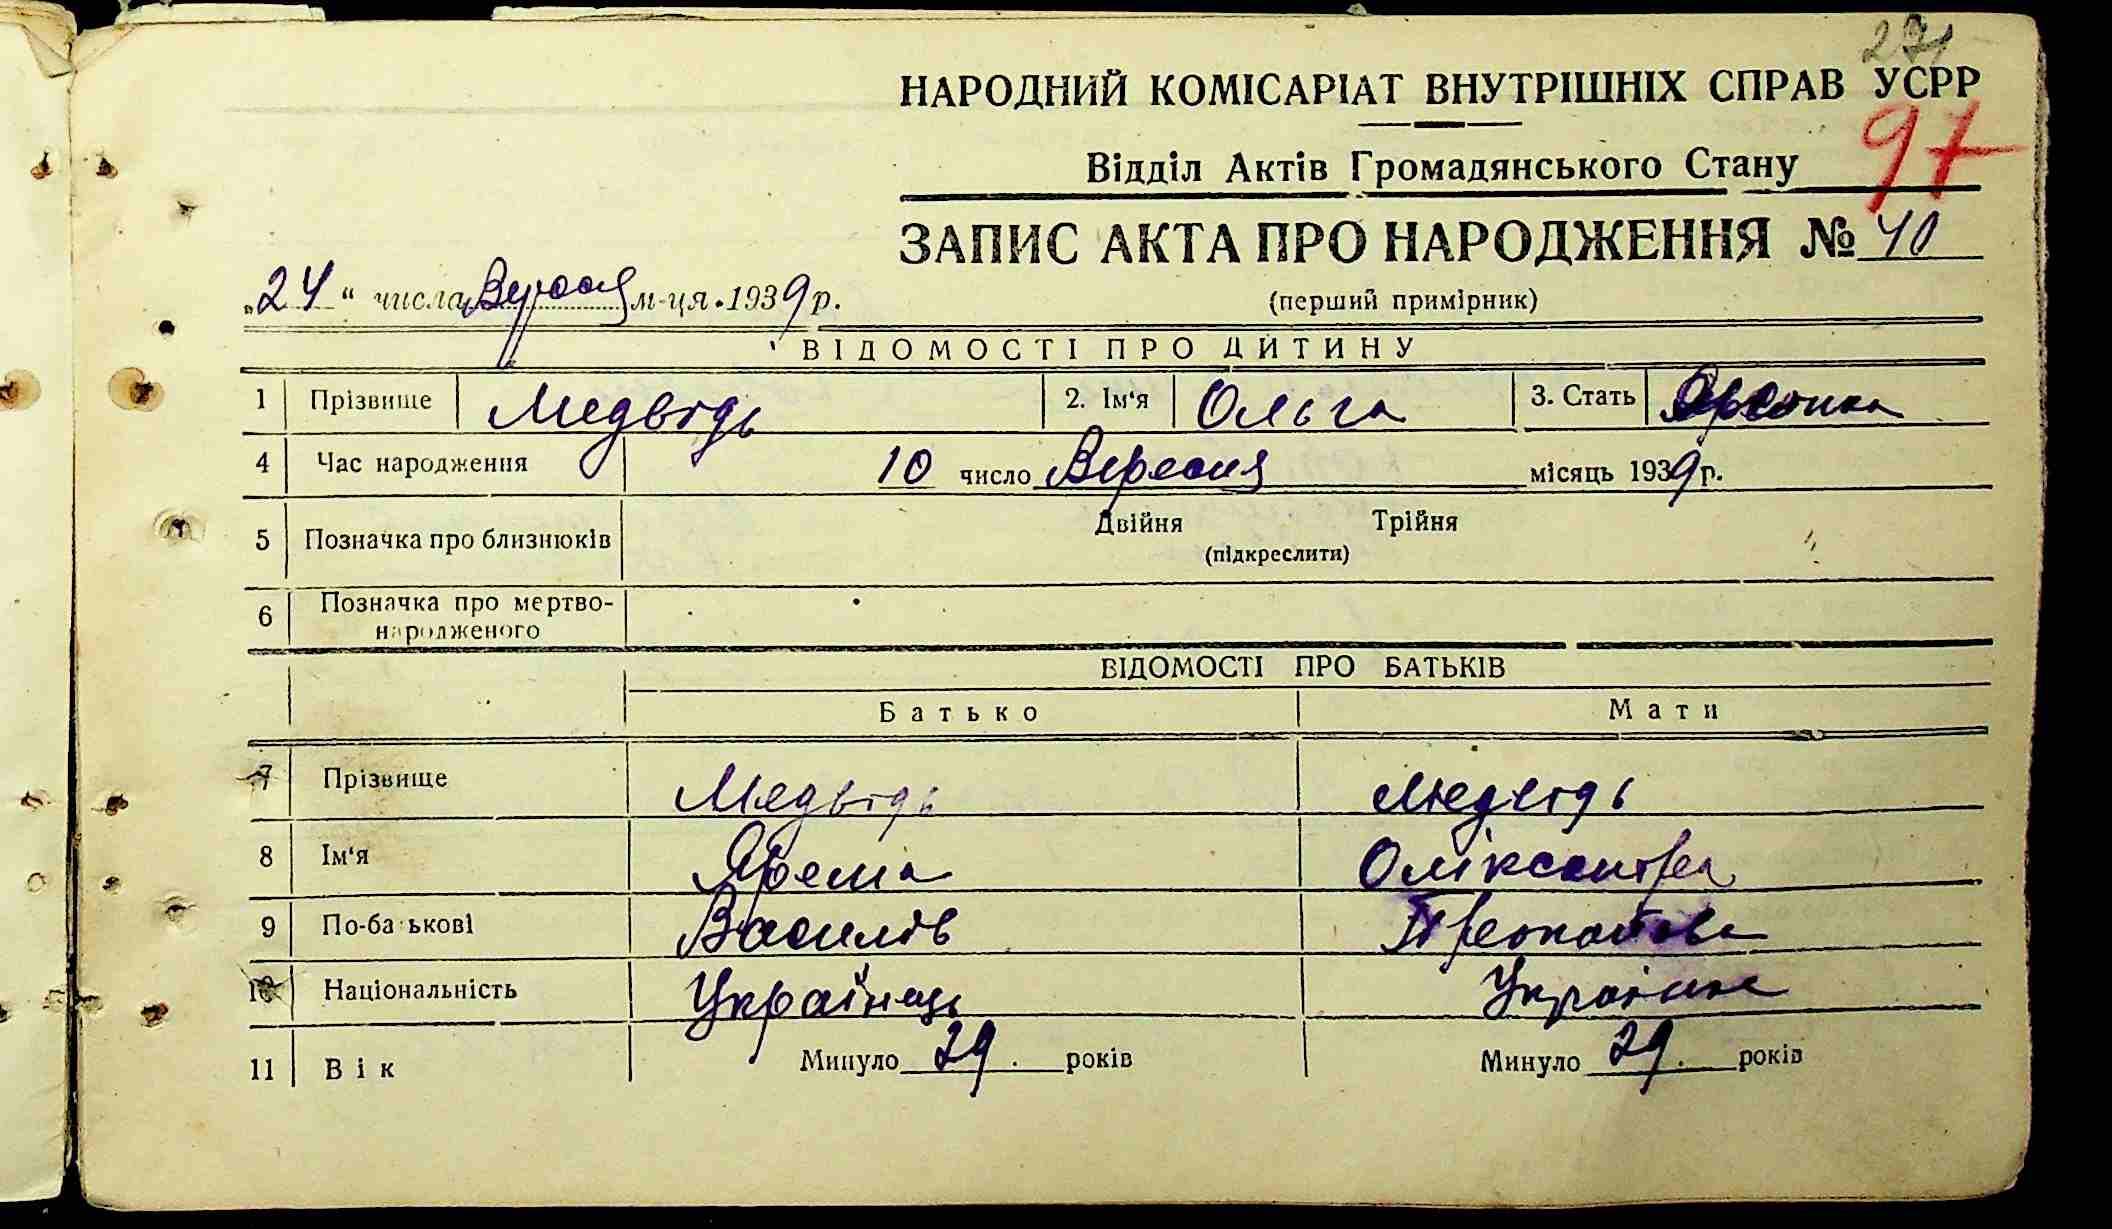 271
НАРОДНИЙ КОМІСАРІАТ ВНУТРІШНІХ СПРАВ УСРР
97
Відділ Актів Громадянського Стану
ЗАПИС АКТА ПРО НАРОДЖЕННЯ № 40
(перший примірник)
„24“ числа Вересня м-ця 1939 р.
ВІДОМОСТІ ПРО ДИТИНУ
1 Прізвище Медвідь 2. Ім'я Ольга 3. Стать
4 Час народження 10 число Вересня місяць 1939 р.
5 Позначка про близнюків Двійня Трійня
(підкреслити)
6 Позначка про мертво-
народженого
ВІДОМОСТІ ПРО БАТЬКІВ
Батько Мати
7 Прізвище Медвідь Медвідь
8 Ім'я Ярема Оліксантра
9 По-батькові Василів
10 Національність Українець Українка
11 Вік Минуло 29 років Минуло 29 років